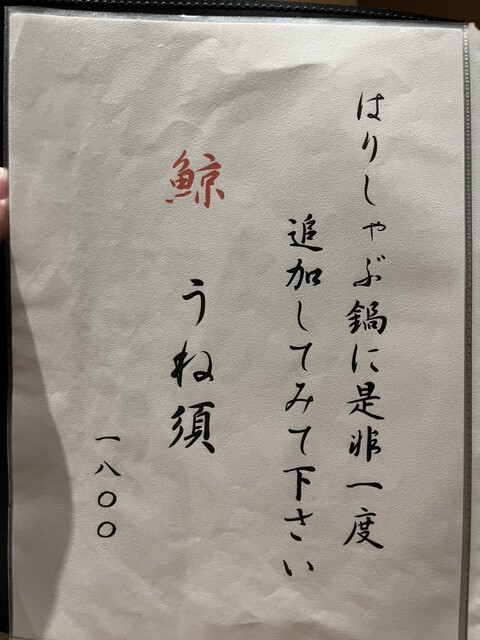 はりしゃぶ鍋に是非一度
追加してみて下さい
鯨 うね須
一八〇〇